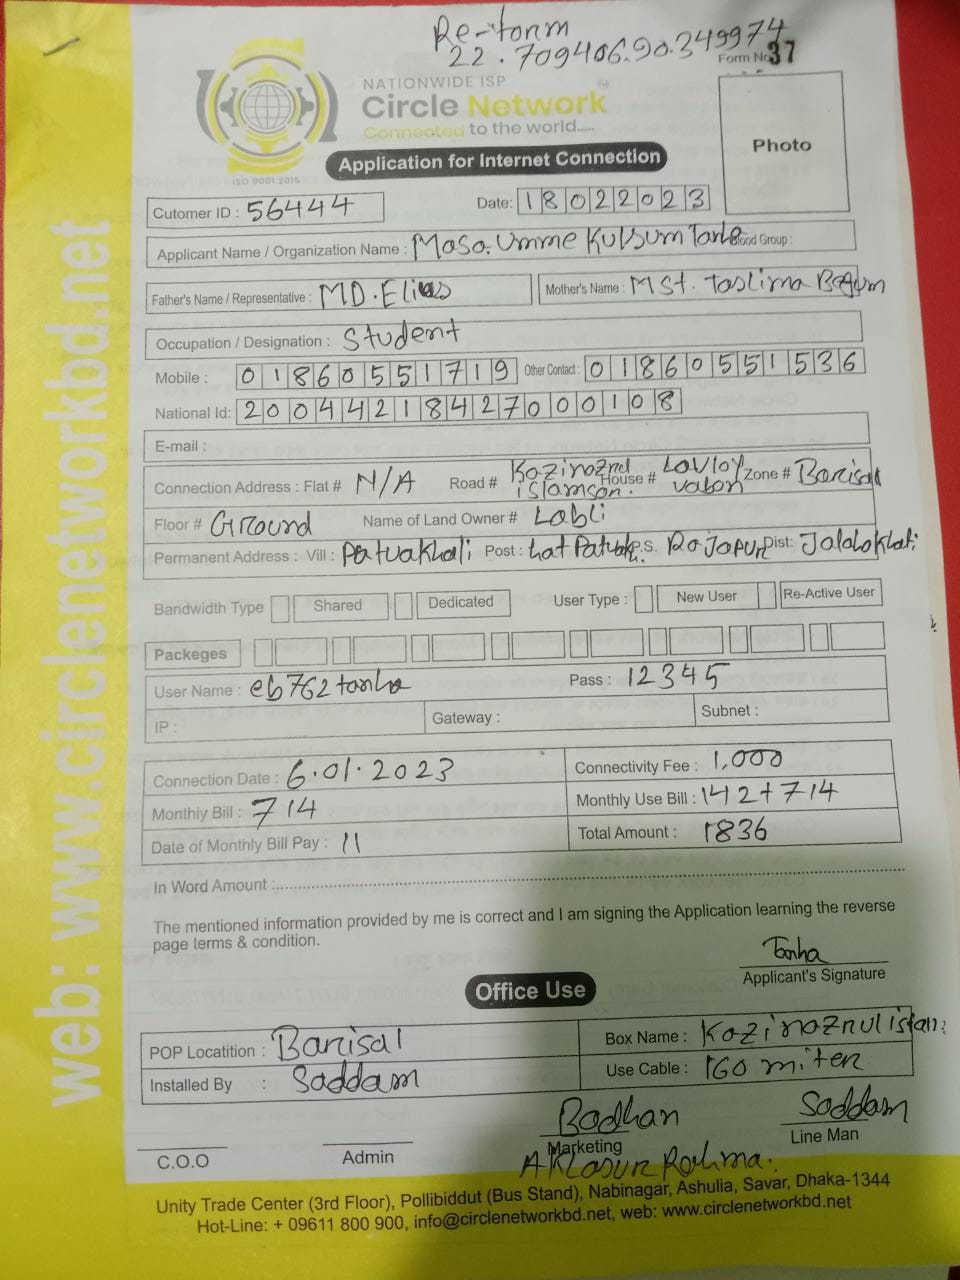 Re-form
22.709406.90.349974
Form No 37
NATIONWIDE ISP
Circle Network
Connected to the world.....
ISO 9001:2015
Application for Internet Connection
Photo
Cutomer ID : 56444
Date: 18022023
Applicant Name / Organization Name : Mosa. Umme Kulsum Tanha Blood Group :
Father's Name / Representative : MD. Elias
Mother's Name : MSt. Taslima Begum
Occupation / Designation : Student
Mobile : 01860551719 Other Contact : 01860551536
National Id: 20044218427000108
E-mail :
Connection Address : Flat # N/A Road # House # Zone # Barisal
Floor # Ground Name of Land Owner # Labli
Permanent Address : Vill : Patuakhali Post : P.S. Rajapur Dist:
Bandwidth Type Shared Dedicated User Type : New User Re-Active User
Packeges
User Name : eb762tanha Pass : 12345
IP : Gateway : Subnet :
Connection Date : 6.01.2023 Connectivity Fee : 1,000
Monthly Bill : 714 Monthly Use Bill : 142+714
Date of Monthly Bill Pay : 11 Total Amount : 1836
In Word Amount :
The mentioned information provided by me is correct and I am signing the Application learning the reverse
page terms & condition.
Tanha
Applicant's Signature
Office Use
POP Locatition : Barisal Box Name :
Installed By : Saddam Use Cable : 160 miter
Badhan Saddam
C.O.O Admin Marketing Line Man
Unity Trade Center (3rd Floor), Pollibiddut (Bus Stand), Nabinagar, Ashulia, Savar, Dhaka-1344
Hot-Line: + 09611 800 900, info@circlenetworkbd.net, web: www.circlenetworkbd.net
web: www.circlenetworkbd.net